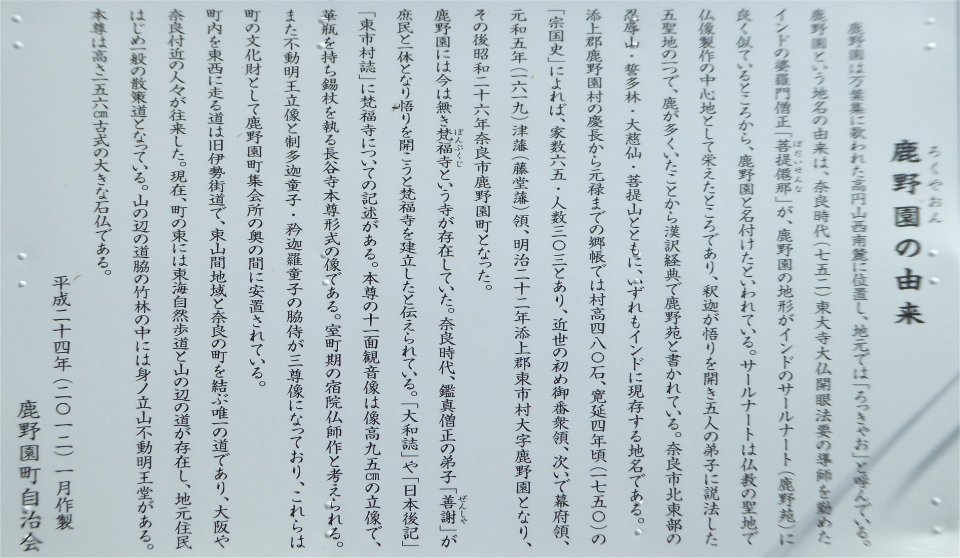 ろくやおん
鹿野園の由来
鹿野園は万葉集に歌われた高円山西南麓に位置し、地元では「ろっきゃお」と呼んでいる。
鹿野園という地名の由来は、奈良時代(七五二)東大寺大仏開眼法要の導師を勤めた
インドの婆羅門僧正「菩提僊那」が、鹿野園の地形がインドのサールナート(鹿野苑)に
ぼだいせんな
良く似ているところから、鹿野園と名付けたといわれている。サールナートは仏教の聖地で
仏像製作の中心地として栄えたところであり、釈迦が悟りを開き五人の弟子に説法した
五聖地の一つで、鹿が多くいたことから漢訳経典で鹿野苑と書かれている。奈良市北東部の
忍辱山・誓多林・大慈仙・菩提山とともに、いずれもインドに現存する地名である。
添上郡鹿野園村の慶長から元禄までの郷帳では村高四八〇石、寛延四年頃(一七五〇)の
「宗国史」によれば、家数六五・人数三〇三とあり、近世の初め御番衆領、次いで幕府領、
元和五年(一六一九)津藩(藤堂藩)領、明治二十二年添上郡東市村大字鹿野園となり、
その後昭和二十六年奈良市鹿野園町となった。
鹿野園には今は無き梵福寺という寺が存在していた。奈良時代、鑑真僧正の弟子「善謝」が
ぼんぷくじ
ぜんしゃ
庶民と一体となり悟りを開こうと梵福寺を建立したと伝えられている。「大和誌」や「日本後記」
「東市村誌」に梵福寺についての記述がある。本尊の十一面観音像は像高九五cmの立像で、
華瓶を持ち錫杖を執る長谷寺本尊形式の像である。室町期の宿院仏師作と考えられる。
また不動明王立像と制多迦童子・矜迦羅童子の脇侍が三尊像になっており、これらは
町の文化財として鹿野園町集会所の奥の間に安置されている。
町内を東西に走る道は旧伊勢街道で、東山間地域と奈良の町を結ぶ唯一の道であり、大阪や
奈良付近の人々が往来した。現在、町の東には東海自然歩道と山の辺の道が存在し、地元住民
はじめ一般の散策道となっている。山の辺の道脇の竹林の中には身ノ立山不動明王堂がある。
本尊は高さ二五六cm古式の大きな石仏である。
平成二十四年(二〇一二)一月作製
鹿野園町自治会